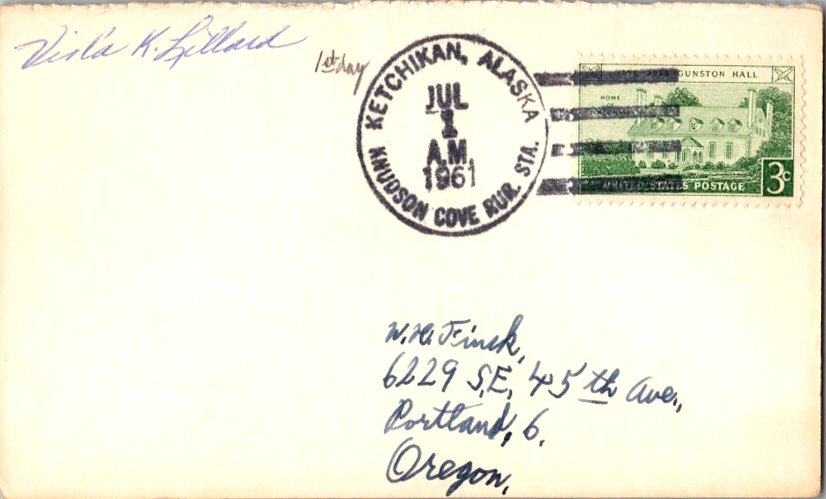 Viola K. Lillard
1st day
KETCHIKAN, ALASKA
JUL
1
A.M.
1961
KNUDSON COVE RUR. STA.
GUNSTON HALL
HOME
UNITED STATES POSTAGE
3c
W. H. Finck,
6229 S.E. 45th Ave.,
Portland, 6.
Oregon.